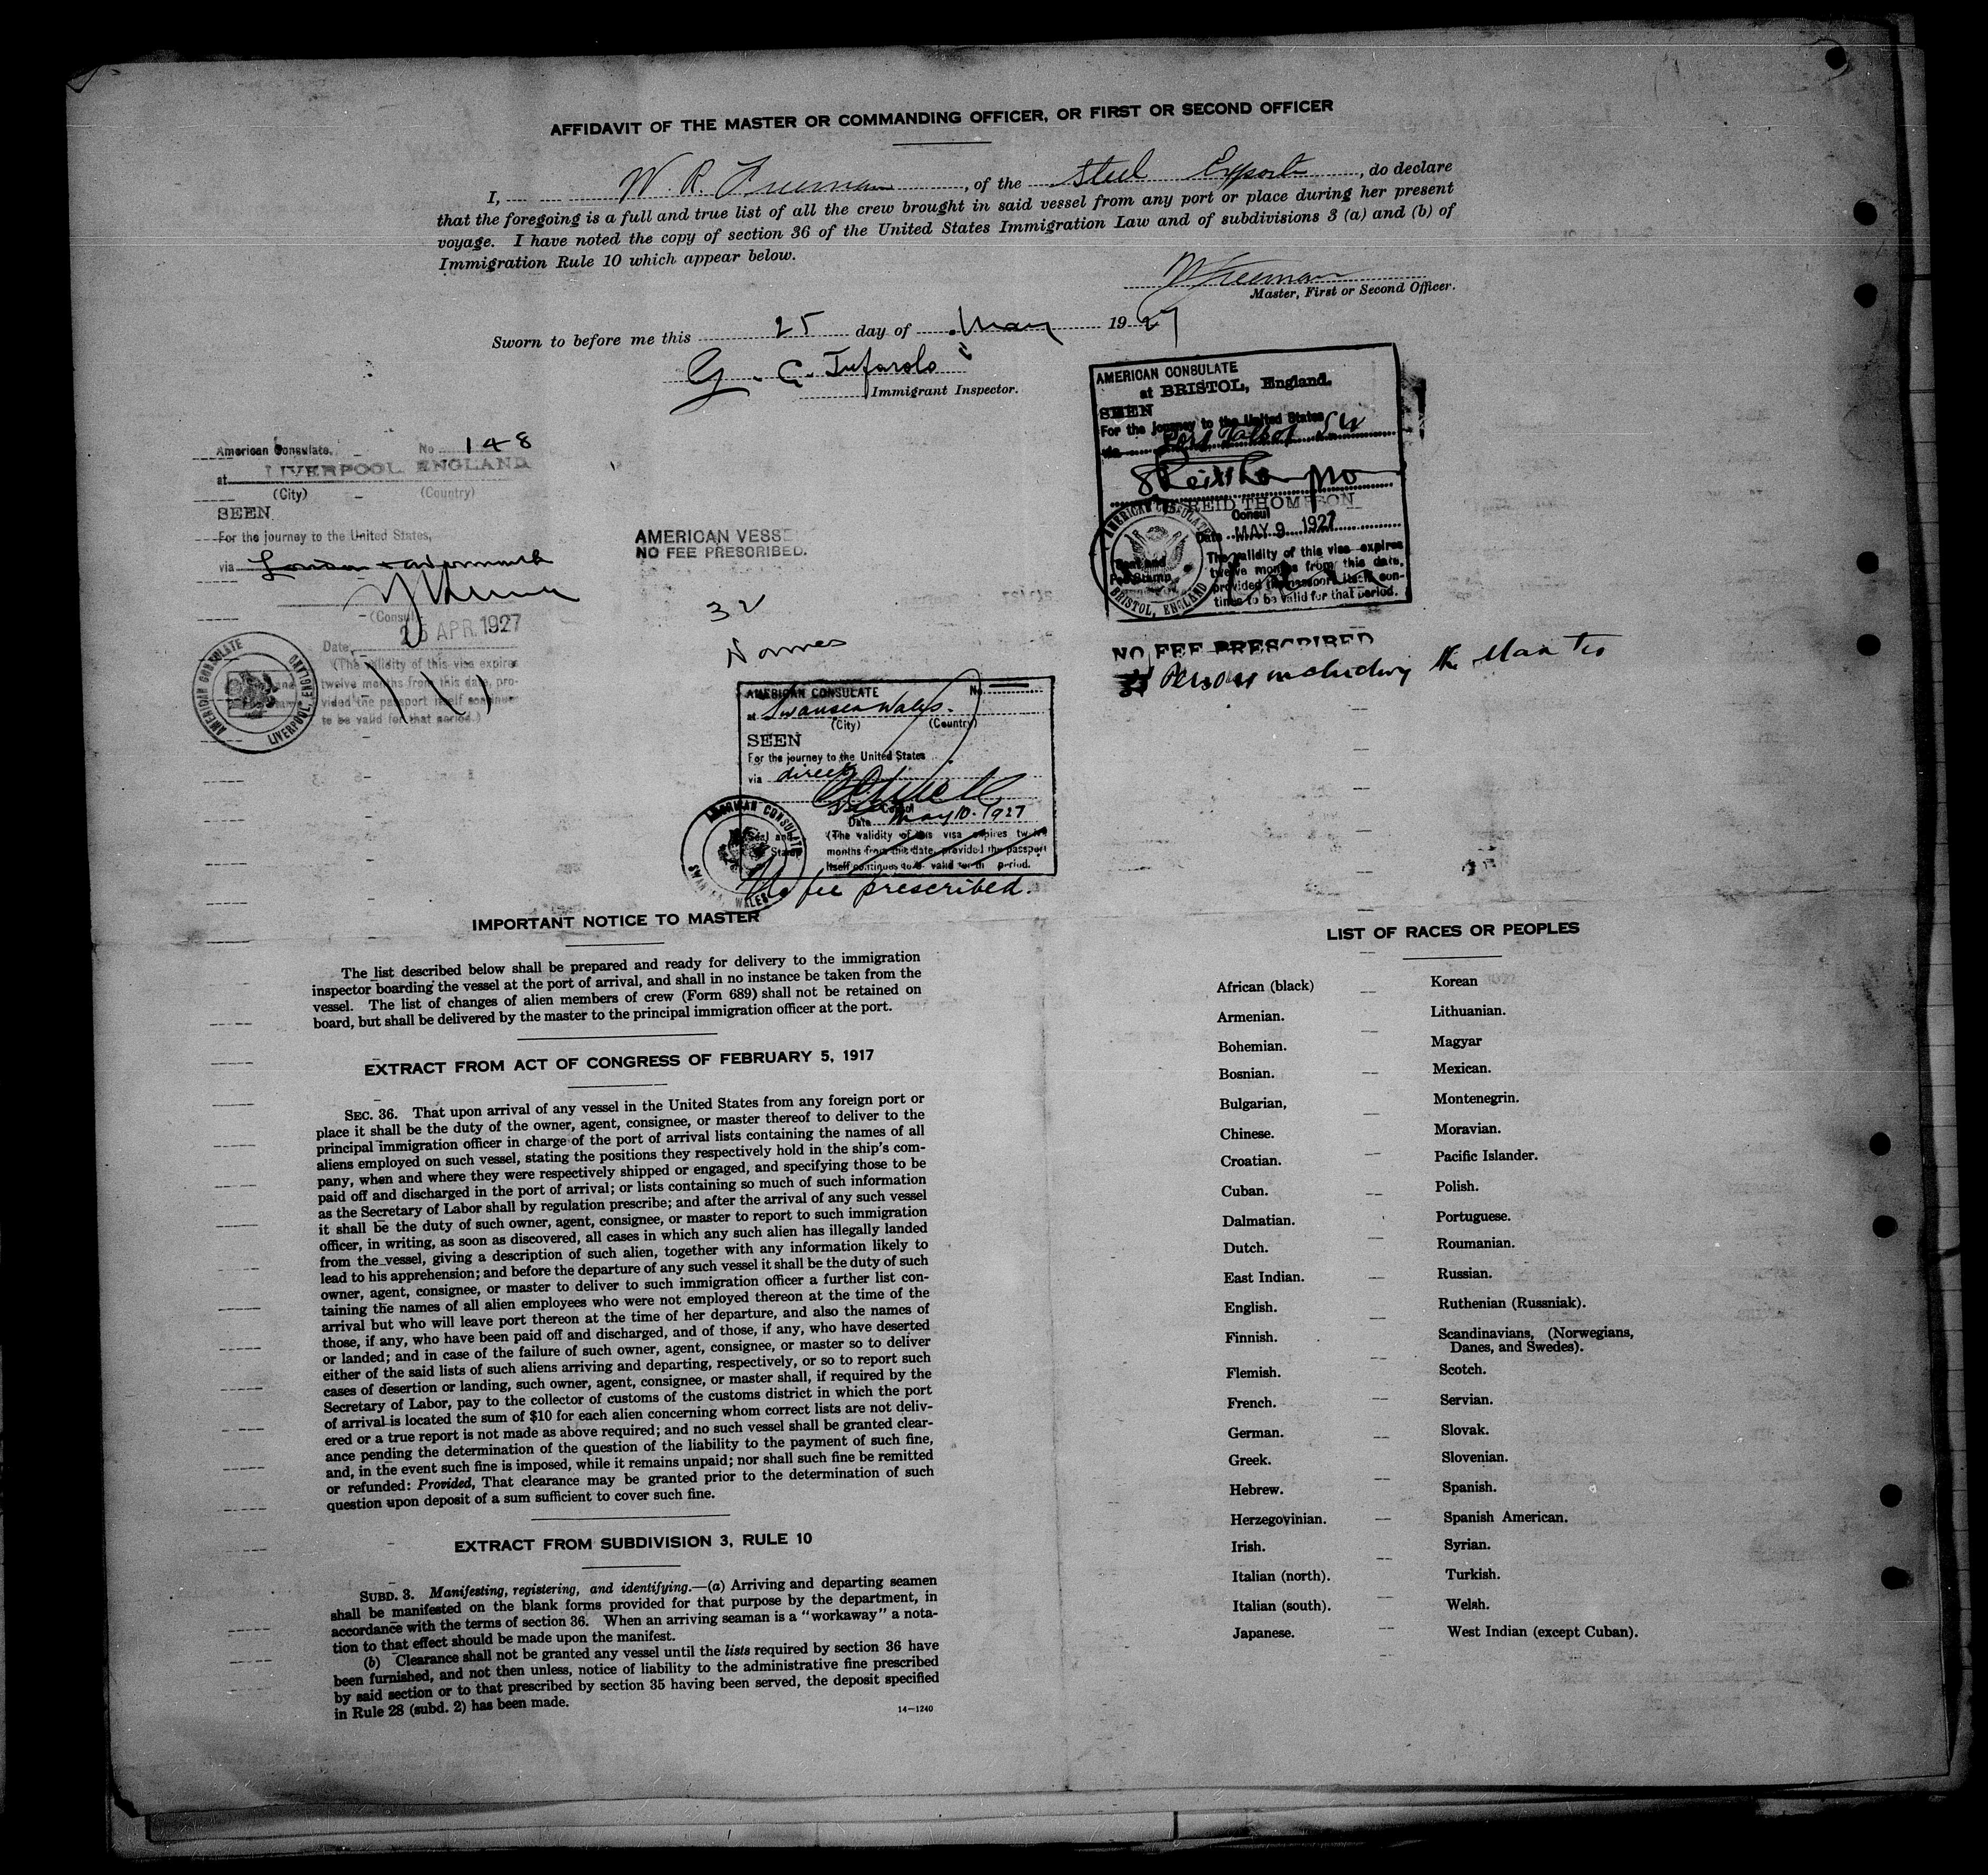 AFFIDAVIT OF THE MASTER OR COMMANDING OFFICER, OR FIRST OR SECOND OFFICER
I, W. R. Freeman, of the Steel Exporter, do declare
that the foregoing is a full and true list of all the crew brought in said vessel from any port or place during her present
voyage. I have noted the copy of section 36 of the United States Immigration Law and of subdivisions 3 (a) and (b) of
Immigration Rule 10 which appear below.
W Freeman
Master, First or Second Officer.
Sworn to before me this 25 day of May 1927
G. C. Tufarolo
Immigrant Inspector.
American Consulate, No 148
at LIVERPOOL ENGLAND
(City) (Country)
SEEN
For the journey to the United States,
via London Avonmouth
(Consul
25 APR. 1927
Date,
(The validity of this visa expires
twelve months from this date, pro-
vided the passport itself continues
to be valid for that period.)
AMERICAN CONSULATE
LIVERPOOL, ENGLAND
AMERICAN VESSE
NO FEE PRESCRIBED.
32
Names
AMERICAN CONSULATE
at BRISTOL, England.
SEEN
For the journey to the United States
via Port Talbot SW
REID THOMPSON
Consul
Date MAY 9 1927
The validity of this visa expires
twelve months from this date,
provided the passport itself con-
tinues to be valid for that period.
Seal and
Fee Stamp
AMERICAN CONSULATE
BRISTOL, ENGLAND
NO FEE PRESCRIBED
Persons including the Master
AMERICAN CONSULATE No.
at Swansea Wales.
(City) (Country)
SEEN
For the journey to the United States
via direct
Consul
Date May 10. 1927
(The validity of this visa expires twelve
months from this date, provided the passport
itself continues to be valid for th period.
AMERICAN CONSULATE
SWANSEA, WALES
No fee prescribed.
IMPORTANT NOTICE TO MASTER
The list described below shall be prepared and ready for delivery to the immigration
inspector boarding the vessel at the port of arrival, and shall in no instance be taken from the
vessel. The list of changes of alien members of crew (Form 689) shall not be retained on
board, but shall be delivered by the master to the principal immigration officer at the port.
EXTRACT FROM ACT OF CONGRESS OF FEBRUARY 5, 1917
SEC. 36. That upon arrival of any vessel in the United States from any foreign port or
place it shall be the duty of the owner, agent, consignee, or master thereof to deliver to the
principal immigration officer in charge of the port of arrival lists containing the names of all
aliens employed on such vessel, stating the positions they respectively hold in the ship's com-
pany, when and where they were respectively shipped or engaged, and specifying those to be
paid off and discharged in the port of arrival; or lists containing so much of such information
as the Secretary of Labor shall by regulation prescribe; and after the arrival of any such vessel
it shall be the duty of such owner, agent, consignee, or master to report to such immigration
officer, in writing, as soon as discovered, all cases in which any such alien has illegally landed
from the vessel, giving a description of such alien, together with any information likely to
lead to his apprehension; and before the departure of any such vessel it shall be the duty of such
owner, agent, consignee, or master to deliver to such immigration officer a further list con-
taining the names of all alien employees who were not employed thereon at the time of the
arrival but who will leave port thereon at the time of her departure, and also the names of
those, if any, who have been paid off and discharged, and of those, if any, who have deserted
or landed; and in case of the failure of such owner, agent, consignee, or master so to deliver
either of the said lists of such aliens arriving and departing, respectively, or so to report such
cases of desertion or landing, such owner, agent, consignee, or master shall, if required by the
Secretary of Labor, pay to the collector of customs of the customs district in which the port
of arrival is located the sum of $10 for each alien concerning whom correct lists are not deliv-
ered or a true report is not made as above required; and no such vessel shall be granted clear-
ance pending the determination of the question of the liability to the payment of such fine,
and, in the event such fine is imposed, while it remains unpaid; nor shall such fine be remitted
or refunded: Provided, That clearance may be granted prior to the determination of such
question upon deposit of a sum sufficient to cover such fine.
EXTRACT FROM SUBDIVISION 3, RULE 10
SUBD. 3. Manifesting, registering, and identifying.—(a) Arriving and departing seamen
shall be manifested on the blank forms provided for that purpose by the department, in
accordance with the terms of section 36. When an arriving seaman is a "workaway" a nota-
tion to that effect should be made upon the manifest.
(b) Clearance shall not be granted any vessel until the lists required by section 36 have
been furnished, and not then unless, notice of liability to the administrative fine prescribed
by said section or to that prescribed by section 35 having been served, the deposit specified
in Rule 28 (subd. 2) has been made.
14—1240
LIST OF RACES OR PEOPLES
African (black)
Armenian.
Bohemian.
Bosnian.
Bulgarian,
Chinese.
Croatian.
Cuban.
Dalmatian.
Dutch.
East Indian.
English.
Finnish.
Flemish.
French.
German.
Greek.
Hebrew.
Herzegovinian.
Irish.
Italian (north).
Italian (south).
Japanese.
Korean
Lithuanian.
Magyar
Mexican.
Montenegrin.
Moravian.
Pacific Islander.
Polish.
Portuguese.
Roumanian.
Russian.
Ruthenian (Russniak).
Scandinavians, (Norwegians,
Danes, and Swedes).
Scotch.
Servian.
Slovak.
Slovenian.
Spanish.
Spanish American.
Syrian.
Turkish.
Welsh.
West Indian (except Cuban).